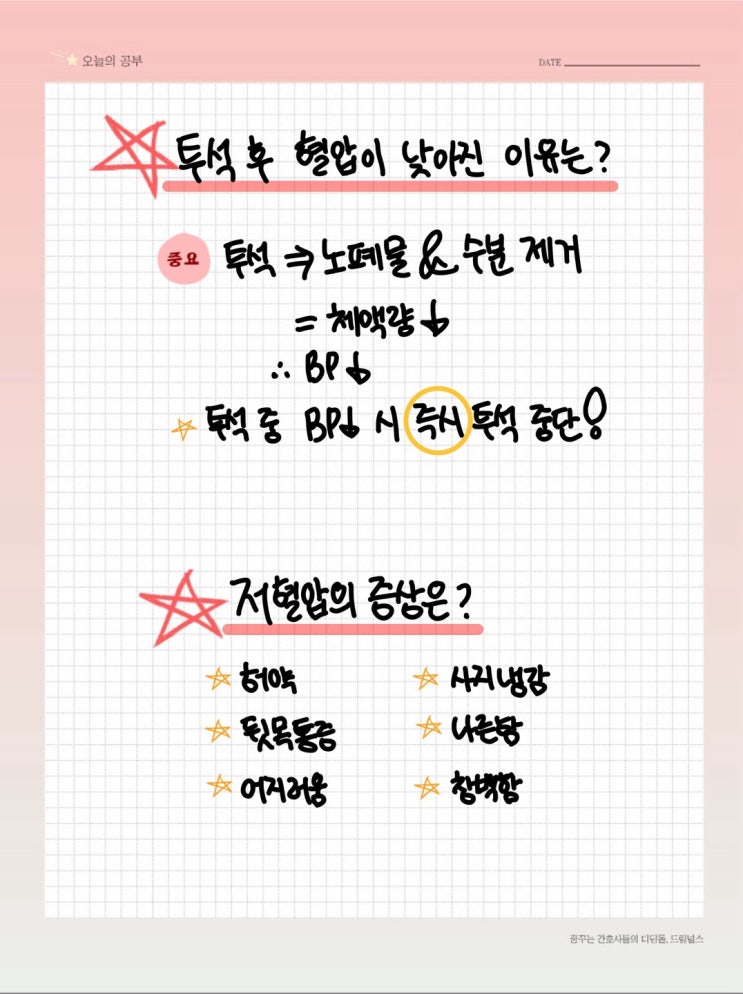 오늘의 공부
DATE
투석 후 혈압이 낮아진 이유는?
중요 투석 ⇒ 노폐물 & 수분 제거
= 체액량↓
∴ BP↓
투석 중 BP↓ 시 즉시 투석 중단!
저혈압의 증상은?
허약 사지냉감
뒷목통증 나른함
어지러움 창백함
꿈꾸는 간호사들의 디딤돌, 드림널스